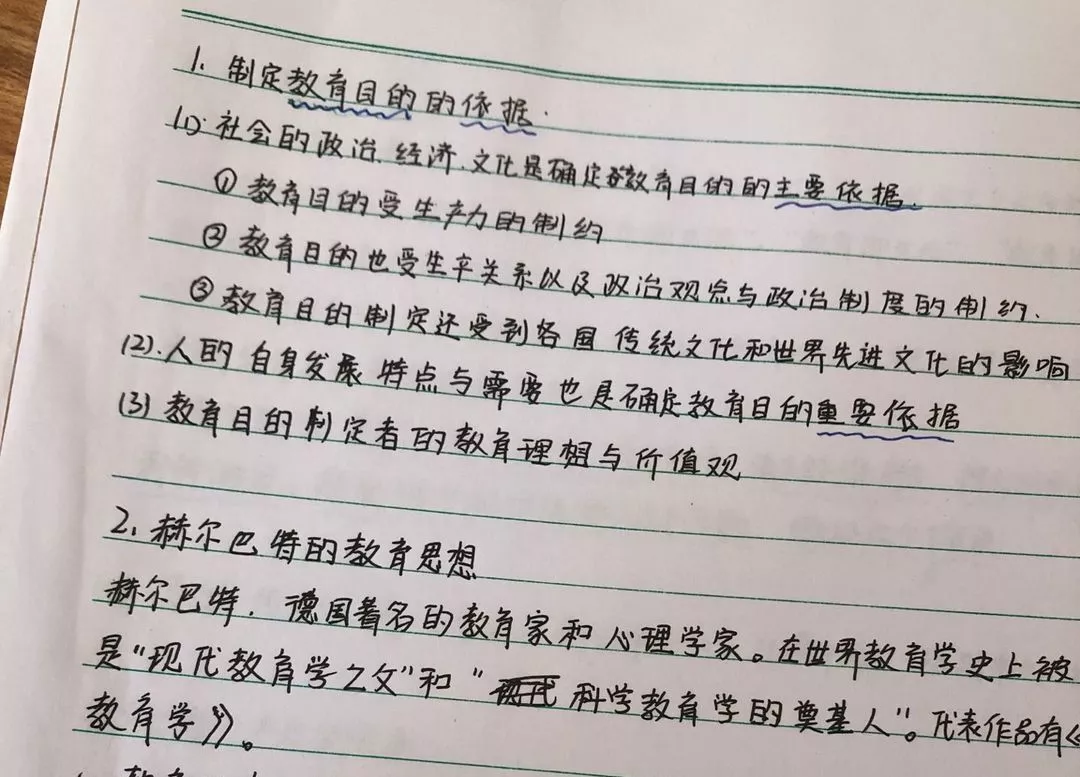 1. 制定教育目的的依据.
(1). 社会的政治、经济、文化是确定教育目的的主要依据.
① 教育目的受生产力的制约
② 教育目的也受生产关系以及政治观点与政治制度的制约.
③ 教育目的制定还受到各国传统文化和世界先进文化的影响
(2). 人的自身发展特点与需要也是确定教育目的重要依据
(3) 教育目的制定者的教育理想与价值观
2. 赫尔巴特的教育思想
赫尔巴特，德国著名的教育家和心理学家。在世界教育学史上被
是“现代教育学之父”和“科学教育学的奠基人”。代表作品有《
教育学》。